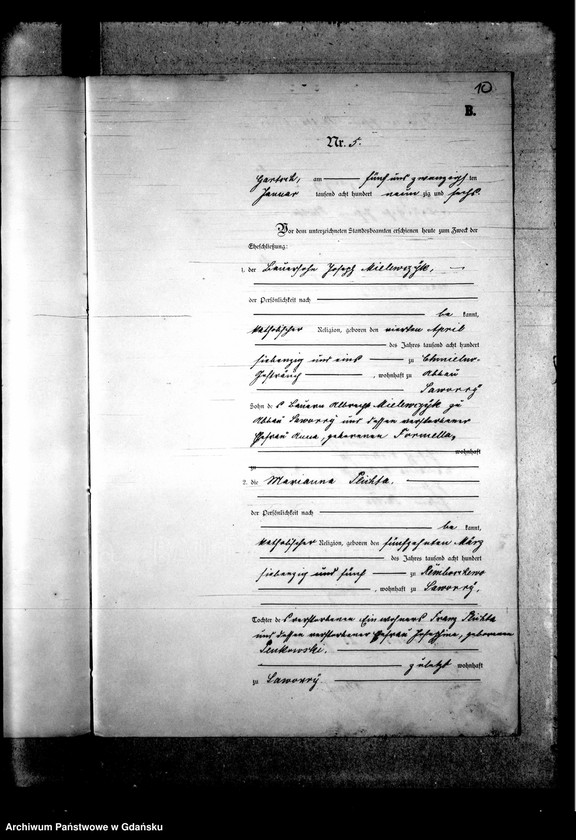 10
B.
Nr. 5.
am fünf und zwanzigsten
Januar tausend acht hundert neun zig und sechs.
Vor dem unterzeichneten Standesbeamten erschienen heute zum Zweck der
Eheschließung:
1. der Bauersohn Joseph Mielewczyk,
der Persönlichkeit nach
be kannt,
katholischer Religion, geboren den vierten April
des Jahres tausend acht hundert
siebenzig und eins zu Chmielno-
Gesträuch, wohnhaft zu Abbau
Saworrÿ
Sohn des Bauern Albrecht Mielewczyk zu
Abbau Saworrÿ und dessen verstorbener
Ehefrau Anna, geborenen Formella,
wohnhaft
zu
2. die Marianna Plichta.
der Persönlichkeit nach
be kannt,
katholischer Religion, geboren den fünfzehnten März
des Jahres tausend acht hundert
siebenzig und fünf zu
, wohnhaft zu Saworrÿ,
Tochter des verstorbenen Einwohners Franz Plichta
und dessen verstorbener Ehefrau Josephine, geborenen
zuletzt wohnhaft
zu Saworrÿ
Archiwum Państwowe w Gdańsku